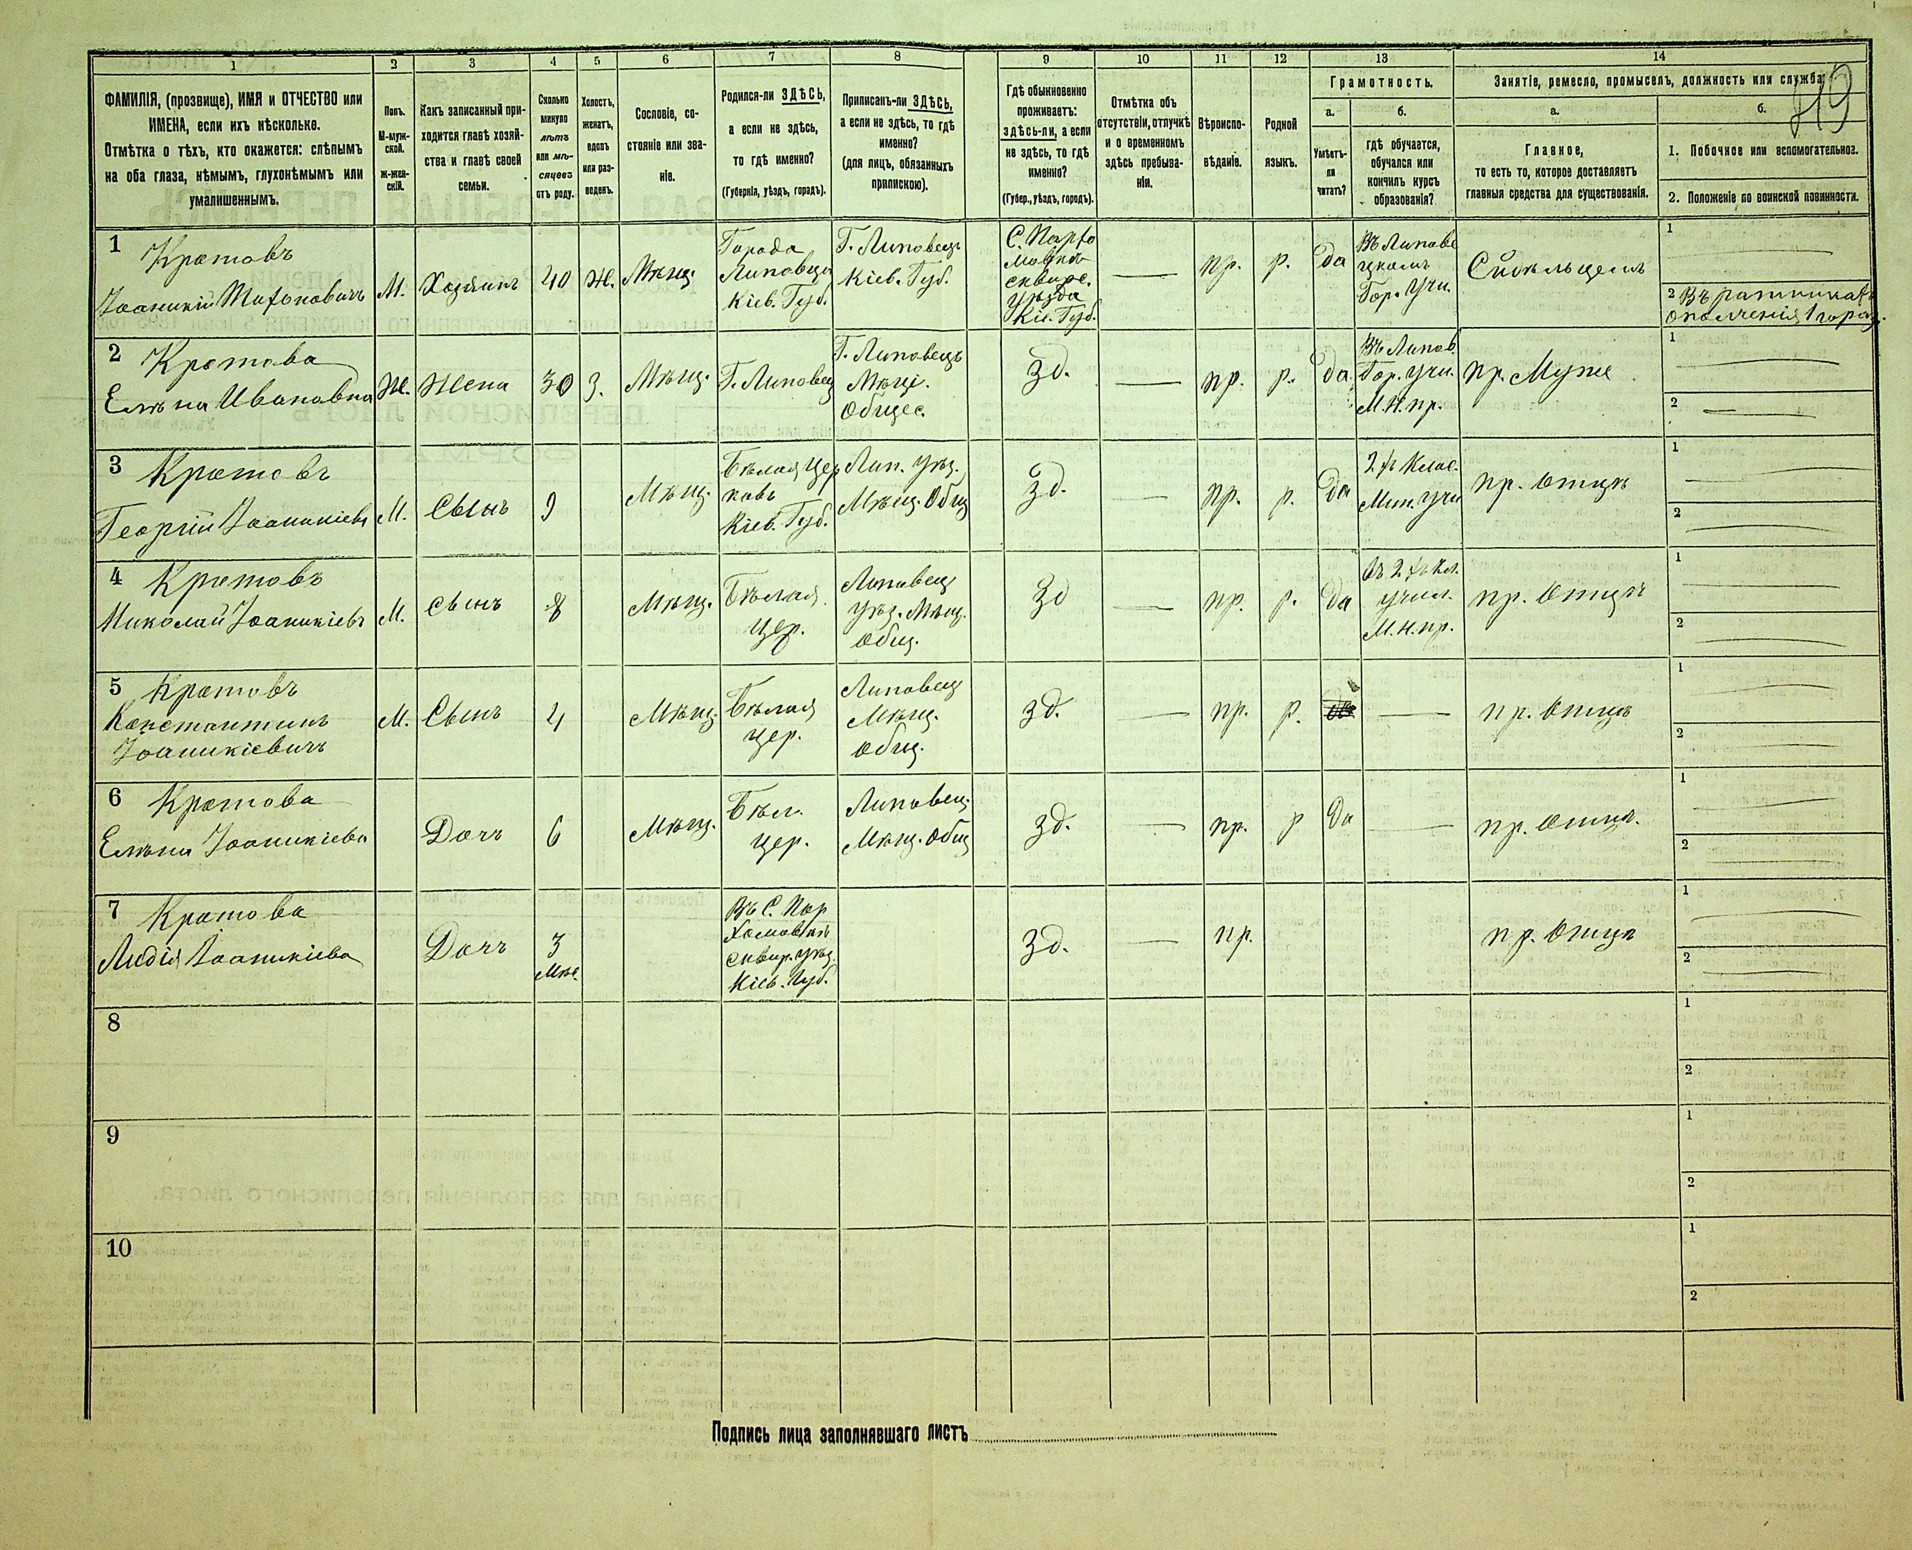 1 2 3 4 5 6 7 8 9 10 11 12 13 14
ФАМИЛІЯ, (прозвище), ИМЯ и ОТЧЕСТВО или
ИМЕНА, если ихъ нѣсколько.
Отмѣтка о тѣхъ, кто окажется: слѣпымъ
на оба глаза, нѣмымъ, глухонѣмымъ или
умалишеннымъ.
Полъ.
М-муж-
ской.
ж-жен-
скій.
Какъ записанный при-
ходится главѣ хозяй-
ства и главѣ своей
семьи.
Сколько
минуло
лѣтъ
или мѣ-
сяцевъ
отъ роду.
Холостъ,
женатъ,
вдовъ
или раз-
веденъ.
Сословіе, со-
стояніе или зва-
ніе.
Родился-ли ЗДѢСЬ,
а если не здѣсь,
то гдѣ именно?
(Губернія, уѣздъ, городъ).
Приписанъ-ли ЗДѢСЬ,
а если не здѣсь, то гдѣ
именно?
(для лицъ, обязанныхъ
припискою).
Гдѣ обыкновенно
проживаетъ:
здѣсь-ли, а если
не здѣсь, то гдѣ
именно?
(Губер., уѣздъ, городъ).
Отмѣтка объ
отсутствіи, отлучкѣ
и о временномъ
здѣсь пребыва-
ніи.
Вѣроиспо-
вѣданіе.
Родной
языкъ.
Грамотность.
а.
Умѣетъ-
ли
читать?
б.
гдѣ обучается,
обучался или
кончилъ курсъ
образованія?
Занятіе, ремесло, промыселъ, должность или служба.
а.
Главное,
то есть то, которое доставляетъ
главныя средства для существованія.
б.
1. Побочное или вспомогательное.
2. Положеніе по воинской повинности.
1
Кротовъ
М.
Хозяинъ
40
Ж.
Мѣщ.
Города
Липовца
Кіев. Губ.
Г. Липовецъ
Кіев. Губ.
Уѣзда
Кіе. Губ.
пр.
р.
да
Въ Липове
цкомъ
Гор. Учи.
1
2 Въ ратникахъ
ополченія 1 разр.
2
Кротова
Елѣна Ивановна
Ж.
Жена
30
З.
Мѣщ.
Г. Липовец
Г. Липовецъ
Мѣщ.
Общес.
Зд.
пр.
р.
да
Въ Липов.
Гор. Учи.
М. Н. пр.
пр. Мужѣ
1
2
3
Кротовъ
Георгій Іоаникіевъ
М.
Сынъ
9
Мѣщ.
Бѣлая Цер
ковь
Кіев. Губ.
Лип. Уѣз.
Мѣщ. Общ
Зд.
пр.
р.
да
Мин. Учи
пр. отцѣ
1
2
4
Кротовъ
Николай Іоаникіевъ
М.
Сынъ
8
Мѣщ.
Бѣлая
Цер.
Липовец
Уѣз. Мѣщ.
Общ.
Зд
пр.
р.
да
учил.
М. Н. пр.
пр. отцѣ
1
2
5
Кротовъ
Константинъ
Іоаникіевичъ
М.
Сынъ
4
Мѣщ.
Бѣлая
Цер.
Липовец
Мѣщ.
Общ.
Зд.
пр.
р.
пр. отцѣ
1
2
6
Кротова
Елѣна Іоаникіева
Дочь
6
Мѣщ.
Бѣл.
Цер.
Липовец.
Мѣщ. Общ
Зд.
пр.
р
да
пр. отцѣ.
1
2
7
Кротова
Лидія Іоаникіева
Дочь
3
Мѣс.
Въ С. Пар
хомовкѣ
Сквир. Уѣз.
Кіев. Губ.
Зд.
пр.
пр. отцѣ
1
2
8
1
2
9
1
2
10
1
2
Подпись лица заполнявшаго листъ